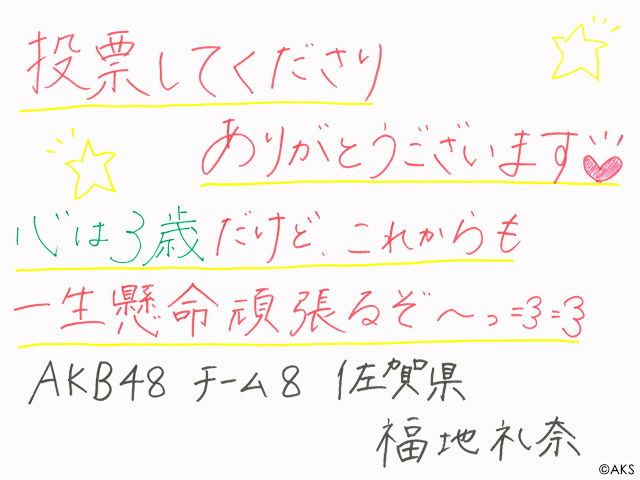 投票してくださり
ありがとうございます
心は3歳だけど、これからも
一生懸命頑張るぞ〜っ=3=3
AKB48 チーム8 佐賀県
福地礼奈
©AKS